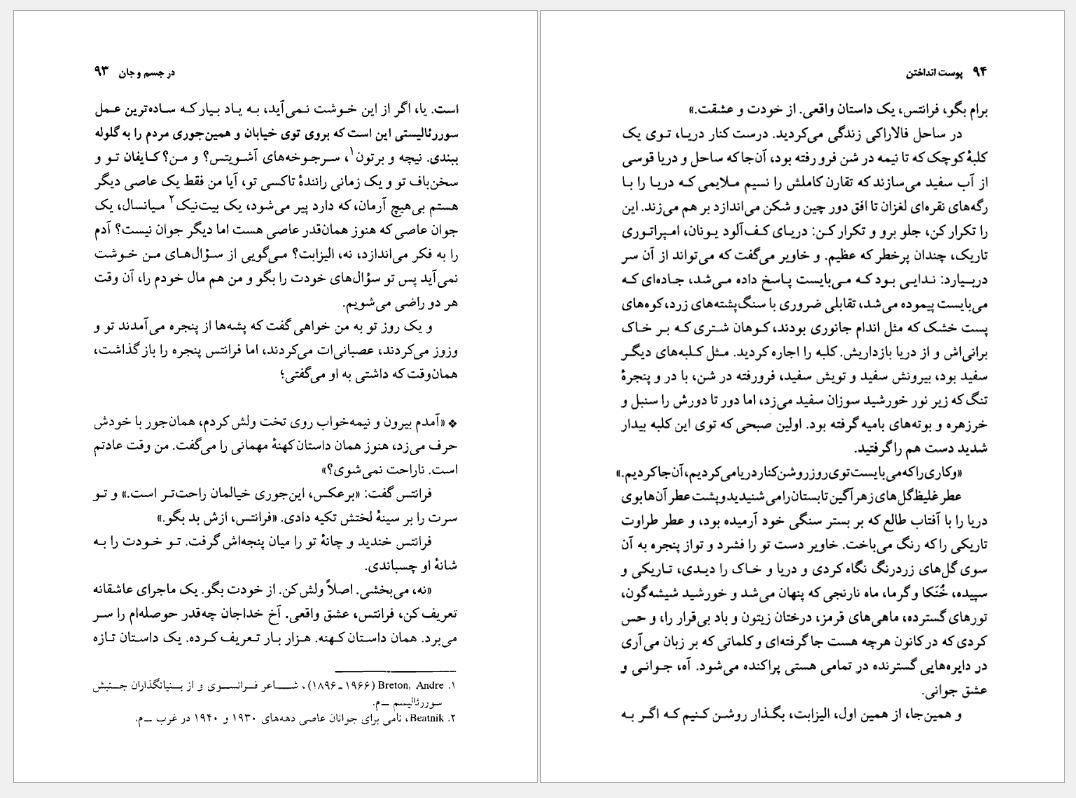 در جسم و جان ۹۳
است. یا، اگر از این خوشت نمی‌آید، به یاد بیار که ساده‌ترین عمل
سوررئالیستی این است که بروی توی خیابان و همین‌جوری مردم را به گلوله
ببندی. نیچه و برتون۱، سرجوخه‌های آشویتس؟ و من؟ کایفان تو و
سخن‌باف تو و یک زمانی رانندهٔ تاکسی تو، آیا من فقط یک عاصی دیگر
هستم بی‌هیچ آرمان، که دارد پیر می‌شود، یک بیت‌نیک۲ میانسال، یک
جوان عاصی که هنوز همان‌قدر عاصی هست اما دیگر جوان نیست؟ آدم
را به فکر می‌اندازد، نه، الیزابت؟ می‌گویی از سؤال‌های من خوشت
نمی‌آید پس تو سؤال‌های خودت را بگو و من هم مال خودم را، آن وقت
هر دو راضی می‌شویم.
و یک روز تو به من خواهی گفت که پشه‌ها از پنجره می‌آمدند تو و
وزوز می‌کردند، عصبانی‌ات می‌کردند، اما فرانتس پنجره را باز گذاشت،
همان‌وقت که داشتی به او می‌گفتی؛
❖ «آمدم بیرون و نیمه‌خواب روی تخت ولش کردم، همان‌جور با خودش
حرف می‌زد، هنوز همان داستان کهنهٔ مهمانی را می‌گفت. من وقت عادتم
است. ناراحت نمی‌شوی؟»
فرانتس گفت: «برعکس، این‌جوری خیالمان راحت‌تر است.» و تو
سرت را بر سینهٔ لختش تکیه دادی. «فرانتس، ازش بد بگو.»
فرانتس خندید و چانهٔ تو را میان پنجه‌اش گرفت. تو خودت را به
شانهٔ او چسباندی.
«نه، می‌بخشی. اصلاً ولش کن. از خودت بگو. یک ماجرای عاشقانه
تعریف کن، فرانتس، عشق واقعی. آخ خداجان چه‌قدر حوصله‌ام را سر
می‌برد. همان داستان کهنه. هزار بار تعریف کرده. یک داستان تازه
۱. Breton, Andre (۱۹۶۶ ـ ۱۸۹۶)، شاعر فرانسوی و از بنیانگذاران جنبش
سوررئالیسم ــ م.
۲. Beatnik، نامی برای جوانان عاصی دهه‌های ۱۹۳۰ و ۱۹۴۰ در غرب ــ م.
۹۴ پوست انداختن
برام بگو، فرانتس، یک داستان واقعی. از خودت و عشقت.»
در ساحل فالاراکی زندگی می‌کردید. درست کنار دریا، توی یک
کلبهٔ کوچک که تا نیمه در شن فرو رفته بود، آن‌جا که ساحل و دریا قوسی
از آب سفید می‌سازند که تقارن کاملش را نسیم ملایمی که دریا را با
رگه‌های نقره‌ای لغزان تا افق دور چین و شکن می‌اندازد بر هم می‌زند. این
را تکرار کن، جلو برو و تکرار کن: دریای کف‌آلود یونان، امپراتوری
تاریک، چندان پرخطر که عظیم. و خاویر می‌گفت که می‌تواند از آن سر
دربیارد: ندایی بود که می‌بایست پاسخ داده می‌شد، جاده‌ای که
می‌بایست پیموده می‌شد، تقابلی ضروری با سنگ‌پشته‌های زرد، کوه‌های
پست خشک که مثل اندام جانوری بودند، کوهان شتری که بر خاک
برانی‌اش و از دریا بازداریش. کلبه را اجاره کردید. مثل کلبه‌های دیگر
سفید بود، بیرونش سفید و تویش سفید، فرورفته در شن، با در و پنجرهٔ
تنگ که زیر نور خورشید سوزان سفید می‌زد، اما دور تا دورش را سنبل و
خرزهره و بوته‌های بامیه گرفته بود. اولین صبحی که توی این کلبه بیدار
شدید دست هم را گرفتید.
«و کاری را که می‌بایست توی روز روشن کنار دریا می‌کردیم، آن‌جا کردیم.»
عطر غلیظ گل‌های زهرآگین تابستان را می‌شنیدید و پشت عطر آن‌ها بوی
دریا را با آفتاب طالع که بر بستر سنگی خود آرمیده بود، و عطر طراوت
تاریکی را که رنگ می‌باخت. خاویر دست تو را فشرد و تو از پنجره به آن
سوی گل‌های زردرنگ نگاه کردی و دریا و خاک را دیدی، تاریکی و
سپیده، خُنَکا و گرما، ماه نارنجی که پنهان می‌شد و خورشید شیشه‌گون،
تورهای گسترده، ماهی‌های قرمز، درختان زیتون و باد بی‌قرار را، و حس
کردی که در کانون هرچه هست جا گرفته‌ای و کلماتی که بر زبان می‌آری
در دایره‌هایی گسترنده در تمامی هستی پراکنده می‌شود. آه، جوانی و
عشق جوانی.
و همین‌جا، از همین اول، الیزابت، بگذار روشن کنیم که اگر به